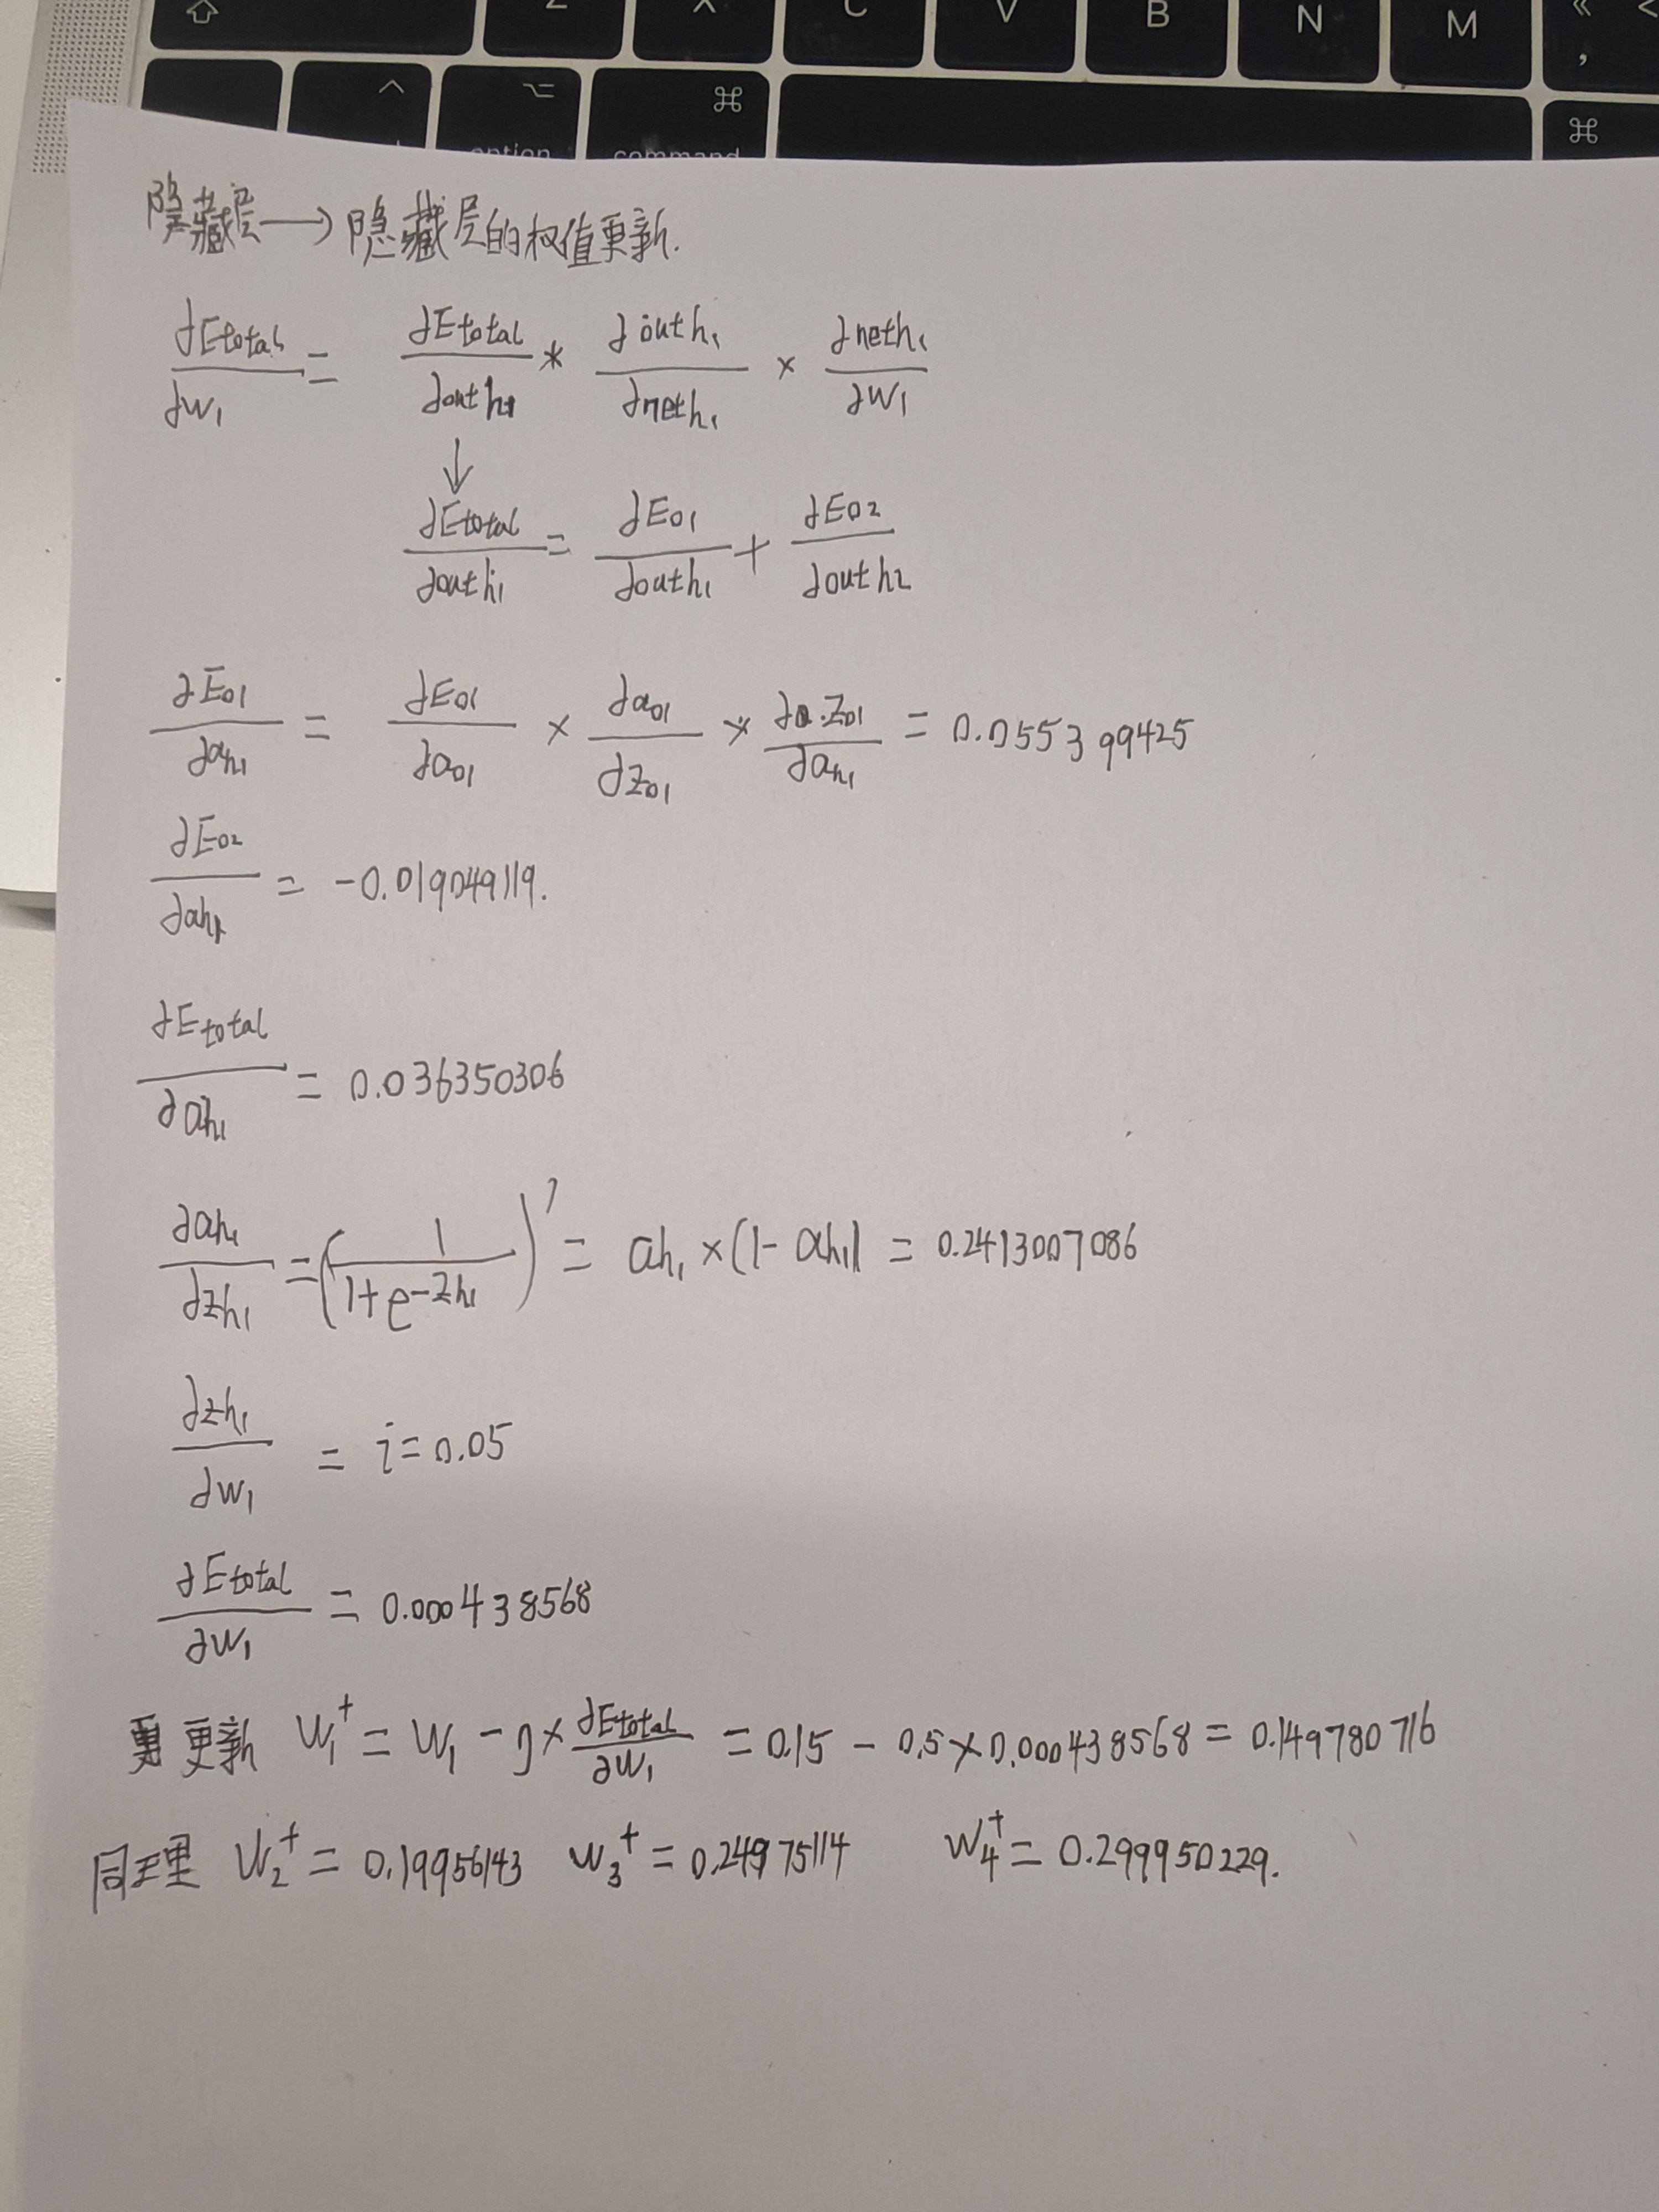 Z X C V B N M «  <
,
^ ⌥ ⌘ ⌘
option command
隐藏层→隐藏层的权值更新.
∂Etotal/∂w₁ = ∂Etotal/∂outh₁ * ∂outh₁/∂neth₁ × ∂neth₁/∂w₁
↓
∂Etotal/∂outh₁ = ∂E₀₁/∂outh₁ + ∂E₀₂/∂outh₂
∂E₀₁/∂ah₁ = ∂E₀₁/∂a₀₁ × ∂a₀₁/∂z₀₁ × ∂z₀₁/∂ah₁ = 0.055399425
∂E₀₂/∂ah₁ = -0.019049119.
∂Etotal/∂ah₁ = 0.036350306
∂ah₁/∂zh₁ = (1/(1+e^-zh₁))' = ah₁×(1-ah₁) = 0.2413007086
∂zh₁/∂w₁ = i = 0.05
∂Etotal/∂w₁ = 0.000438568
更新 w₁⁺ = w₁ - η×∂Etotal/∂w₁ = 0.15 - 0.5×0.000438568 = 0.149780716
同理 w₂⁺ = 0.19956143 w₃⁺ = 0.24975114 w₄⁺ = 0.299950229.